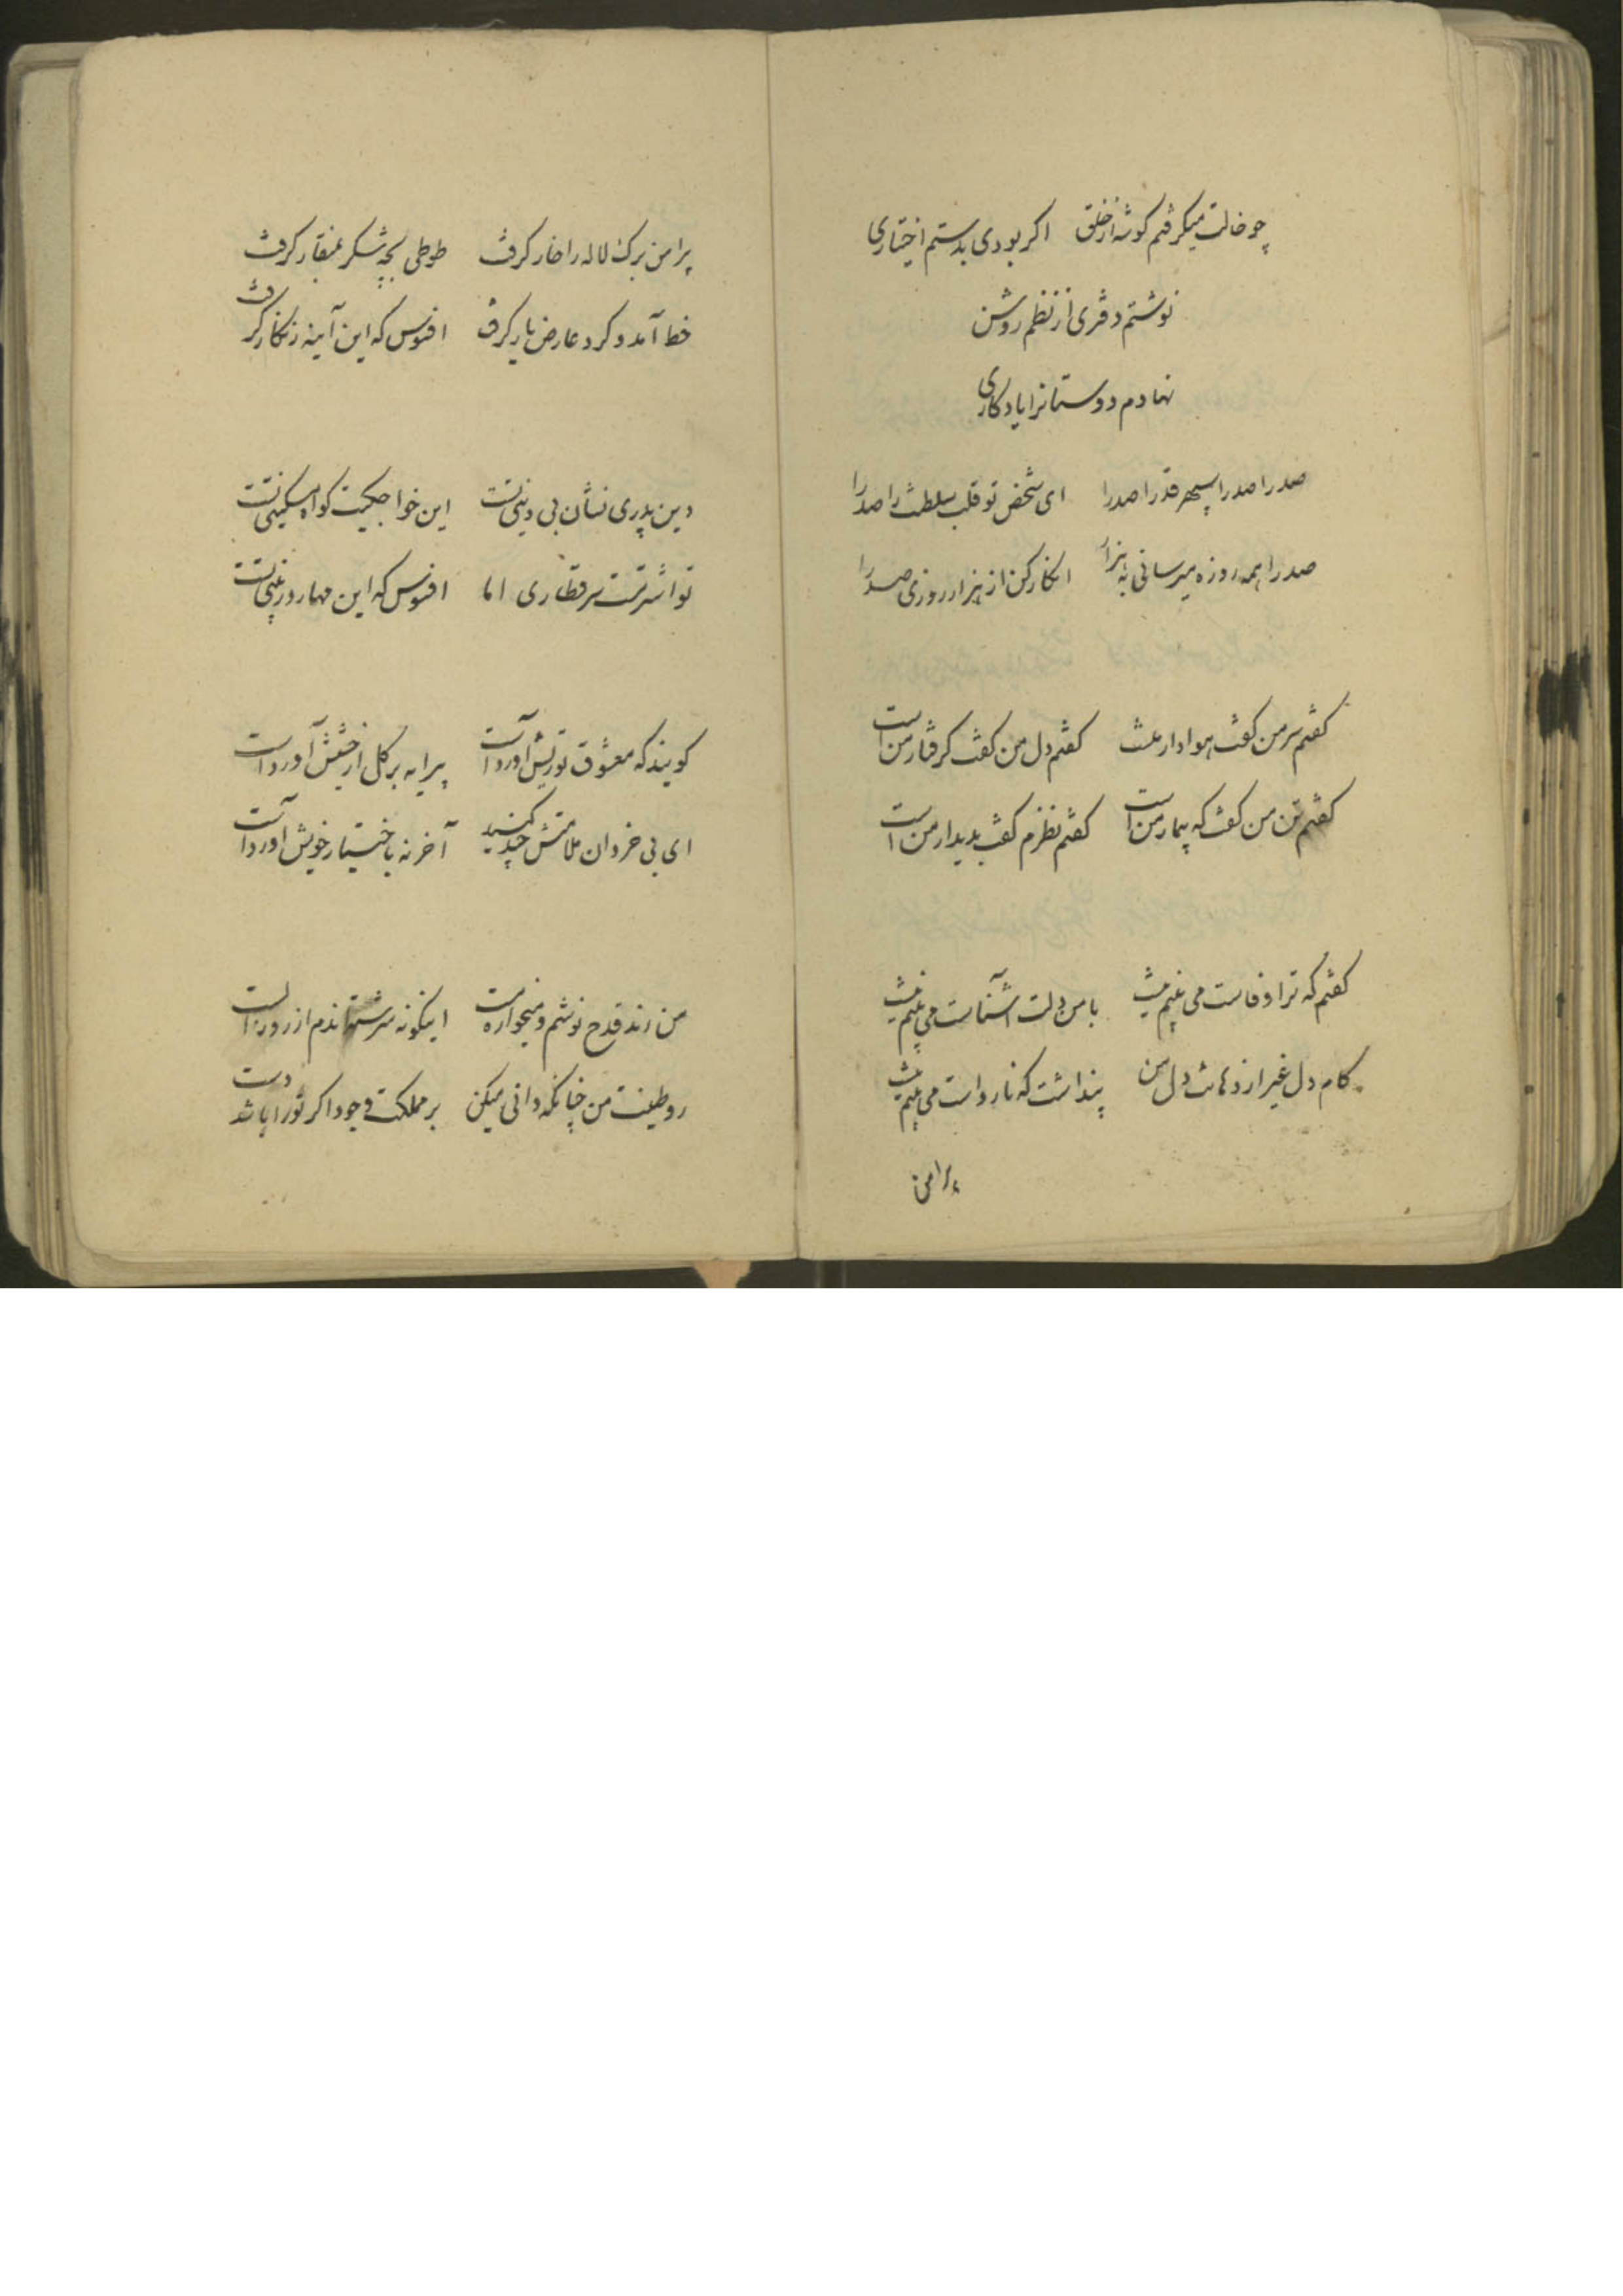 چو خالت میگرفتم گوشه از خلق اگر بودی بدستم اختیاری
نوشتم دفتری از نظم روشن
نهادم دوستانرا یادگاری
صدرا صدرا سپهر قدرا صدرا ای شخص تو قلب سلطنت را صدرا
صدرا همه روزه میرسانی به هزار انکار کن از هزار روزی صدرا
گفتم سر من گفت هوادار منست گفتم دل من گفت گرفتار من است
گفتم تن من گفت که بیمار من است گفتم نظرم گفت بدیدار من است
گفتم که ترا وفاست می بینم نیست با من دلت آشناست می بینم نیست
کام دل غیر از دهانت دل من پنداشت که نارواست می بینم نیست
پیرامن
پیرامن برک لاله را خار گرفت طوطی بچه شکر بمنقار گرفت
خط آمد و گرد عارض یار گرفت افسوس که این آینه زنگار گرفت
دین پدری نشان بی دینی تست این خواجگیت گواه مسکینی تست
تو اشتر مست سر قطاری اما افسوس که این مهار در بینی تست
گویند که معشوق تو ریش آورد است پیرایه بر گل از خشش آورد است
ای بی خردان ملامتش چند کنید آخر نه باختیار خویش آورد است
من رند قدح نوشم و میخواره مست اینگونه سرشته‌اندم از روز الست
رو طینت من چنانکه دانی میکن بر مملکت وجود اگر تو را باشد دست